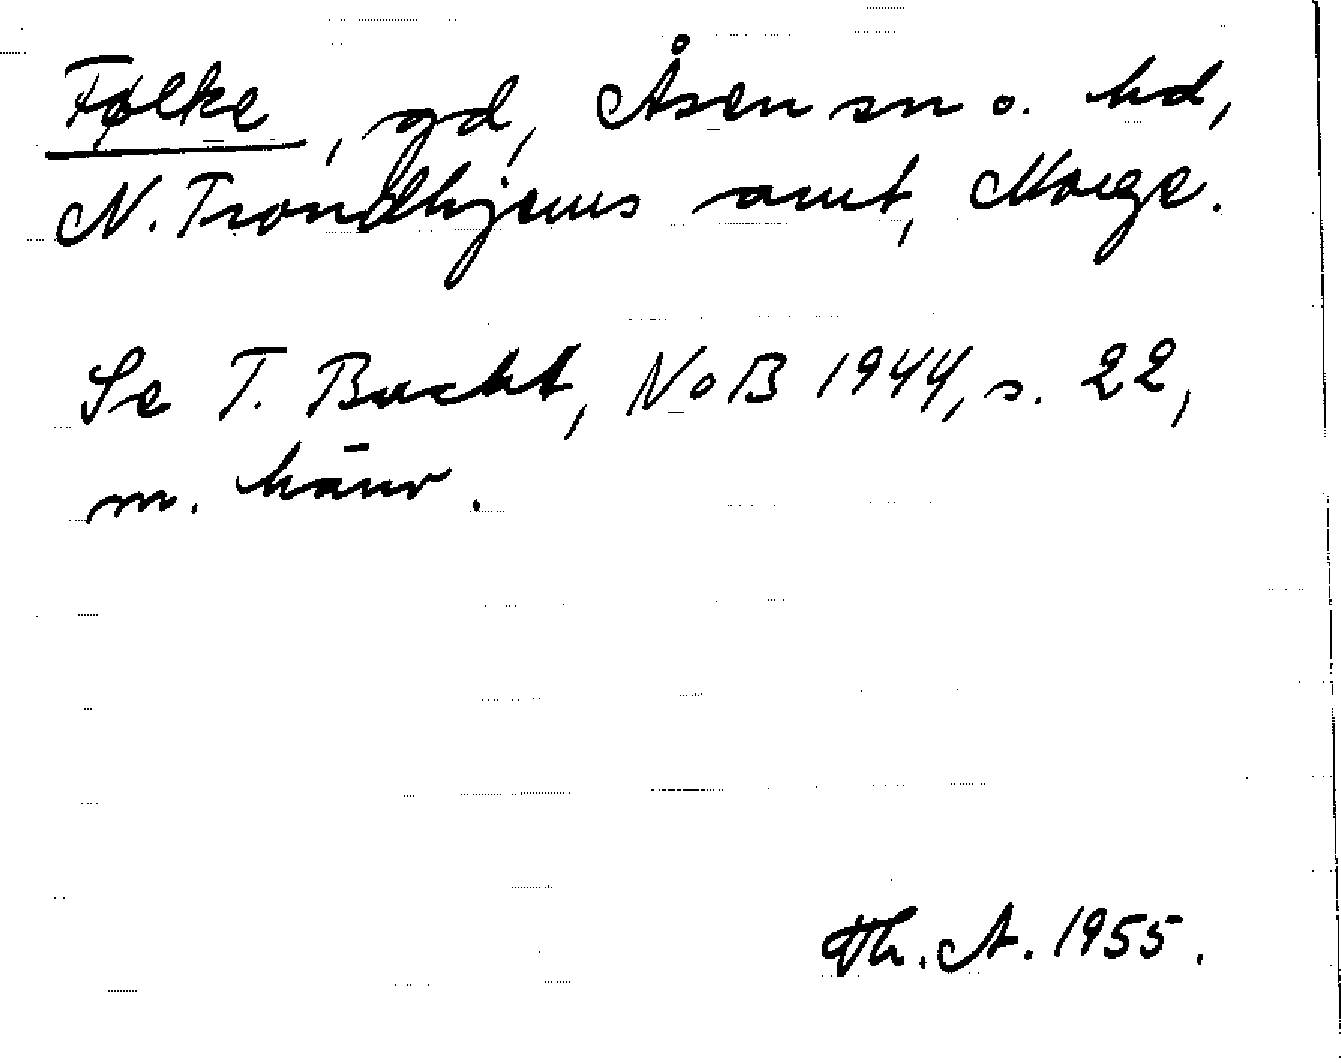 Følke, gd, Åsen sn o. hd,
N. Trondhjems amt, Norge.
Se T. Bucht, NoB 1944, s. 22,
m. hänv.
Th. A. 1955.